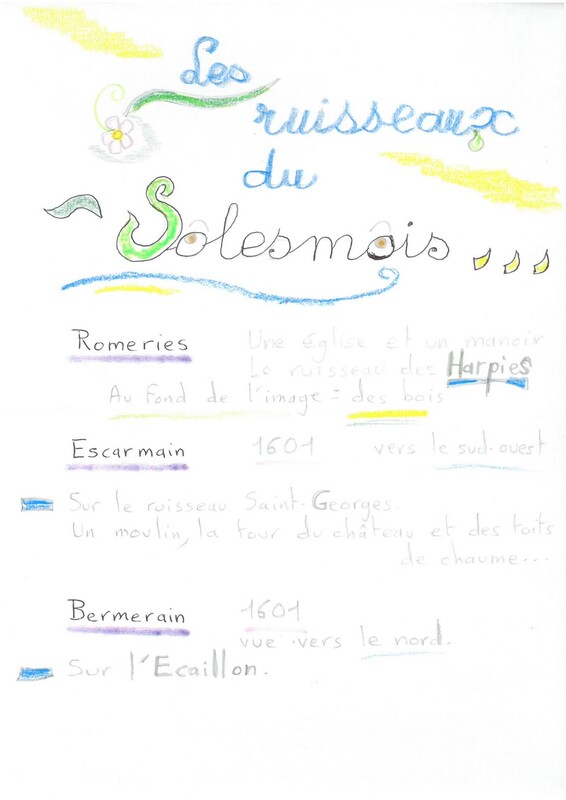 Les
ruisseaux
du
Solesmois...
Romeries Une église et un manoir
Le ruisseau des Harpies
Au fond de l'image = des bois
Escarmain 1601 vers le sud-ouest
Sur le ruisseau Saint-Georges.
Un moulin, la tour du château et des toits
de chaume...
Bermerain 1601
vue vers le nord.
Sur l'Ecaillon.